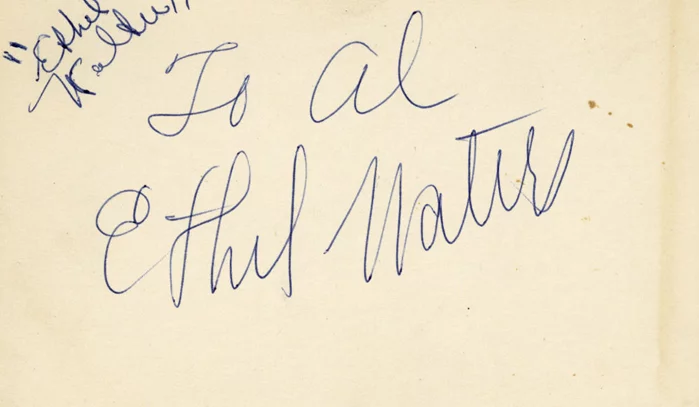 "Ethel
To Al
Ethel Waters